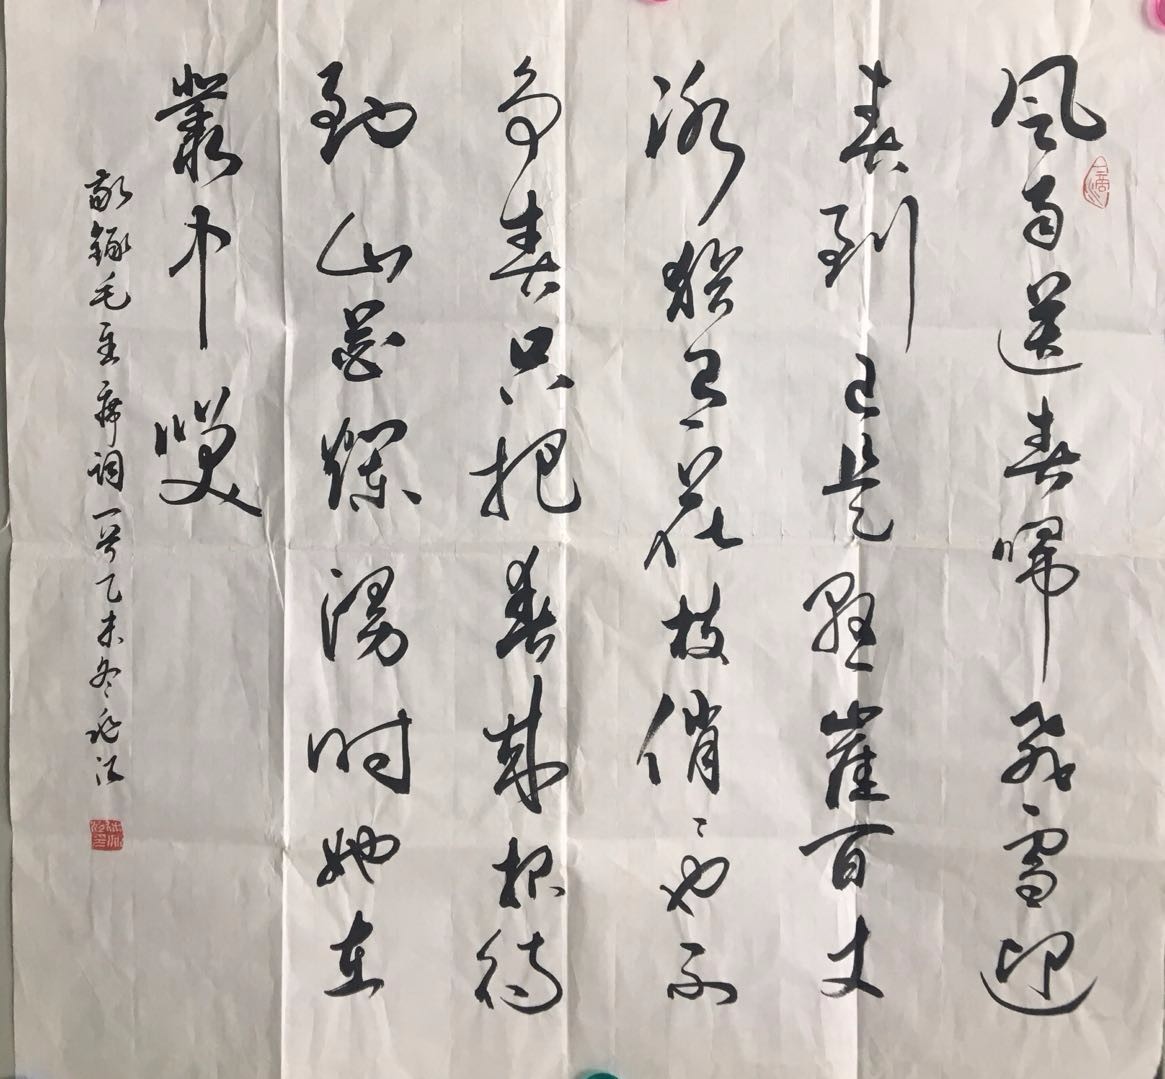 风雨送春歸飛雪迎
春到已是懸崖百丈
冰猶有花枝俏々也不
争春只把春來报待
到山花爛漫时她在
叢中笑
敬録毛主席词一首乙未冬